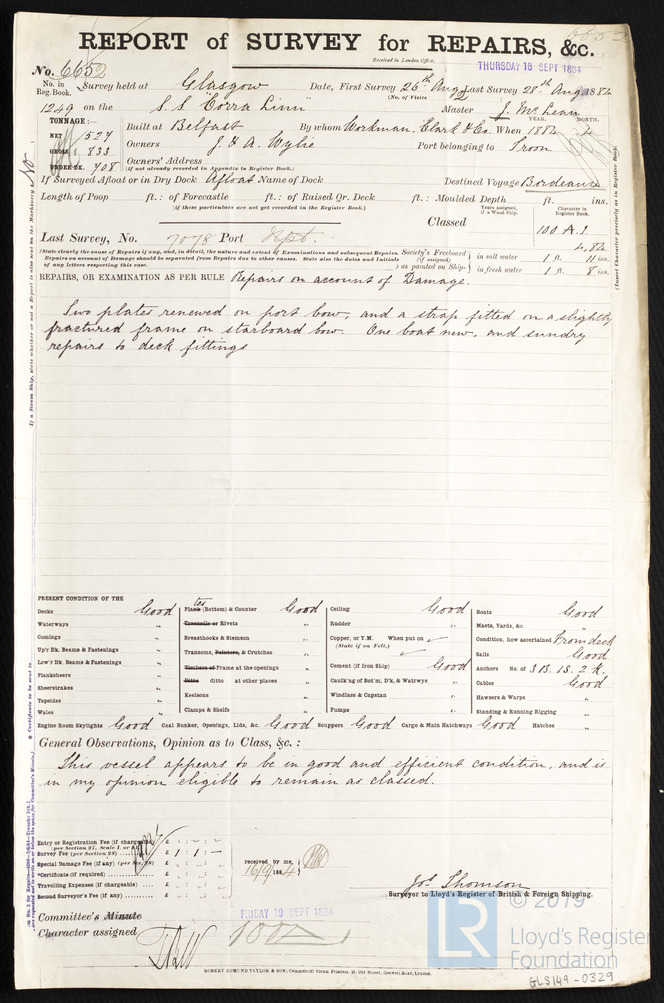 REPORT of SURVEY for REPAIRS, &c.
Received in London Office,
THURSDAY 18 SEPT 1884
No. 6652
No. in Reg. Book. Survey held at Glasgow Date, First Survey 26th Aug Last Survey 28th Aug 1884
(No. of Visits 2
1249 on the S.S "Corra Linn" Master J. McLean
TONNAGE:— YEAR. MONTH.
NET 527 Built at Belfast By whom Workman, Clark & Co. When 1882 4
GROSS 833 Owners J. & A. Wylie Port belonging to Troon
UNDER DK. 708 Owners' Address
(if not already recorded in Appendix to Register Book.)
If Surveyed Afloat or in Dry Dock Afloat Name of Dock Destined Voyage Bordeaux
Length of Poop ft.: of Forecastle ft.: of Raised Qr. Deck ft.: Moulded Depth ft. ins.
(if these particulars are not yet recorded in the Register Book.)
Years assigned, if a Wood Ship. Character in Register Book.
Classed 100 A.1.
4,82
Last Survey, No. 7078 Port Gpt.
(State clearly the cause of Repairs if any, and, in detail, the nature and extent of Examinations and subsequent Repairs.
Repairs on account of Damage should be separated from Repairs due to other causes. State also the dates and Initials
of any letters respecting this case.
Society's Freeboard (if assigned) as painted on Ship- in salt water 1 ft. 11 ins.
in fresh water 1 ft. 8 ins.
REPAIRS, OR EXAMINATION AS PER RULE Repairs on account of Damage.
Two plates renewed on port bow, and a strap fitted on a slightly
fractured frame on starboard bow. One boat new, and sundry
repairs to deck fittings
PRESENT CONDITION OF THE
Decks Good
Waterways "
Comings "
Up'r Dk. Beams & Fastenings "
Low'r Dk. Beams & Fastenings "
Planksheers "
Sheerstrakes "
Topsides "
Wales "
Plates (Bottom) & Counter Good
Treenails or Rivets "
Breasthooks & Stemson "
Transoms, Pointers, & Crutches "
Timbers of Frame at the openings "
Ditto ditto at other places "
Keelsons "
Clamps & Shelfs "
Ceiling Good
Rudder "
Copper, or Y.M. When put on
(State if on Felt.)
Cement (if Iron Ship) Good
Caulk'ng of Bot'm, D'k, & Watrwys "
Windlass & Capstan "
Pumps "
Boats Good
Masts, Yards, &c. "
Condition, how ascertained From deck
Sails Good
Anchors No. of 3 B. 1S. 2 K.
Cables Good
Hawsers & Warps "
Standing & Running Rigging "
Engine Room Skylights Good Coal Bunker, Openings, Lids, &c. Good Scuppers Good Cargo & Main Hatchways Good Hatches "
General Observations, Opinion as to Class, &c. :
This vessel appears to be in good and efficient condition, and is
in my opinion eligible to remain as classed.
Entry or Registration Fee (if chargeable)
Survey Fee (per Section 28) £ 1 : 1 : -
Special Damage Fee (if any) (per Sec. 28)
*Certificate (if required)
Travelling Expenses (if chargeable)
Second Surveyor's Fee (if any)
received by me,
16/9/1884
Jos. Thomson
Surveyor to Lloyd's Register of British & Foreign Shipping.
Committee's Minute
FRIDAY 19 SEPT 1884
Character assigned 100 A 1
ROBERT EDMUND TAYLOR & SON, Commercial Steam Printers, 19, Old Street, Goswell Road, London.
© 2019
LR
Lloyd's Register
Foundation
GLS149-0329